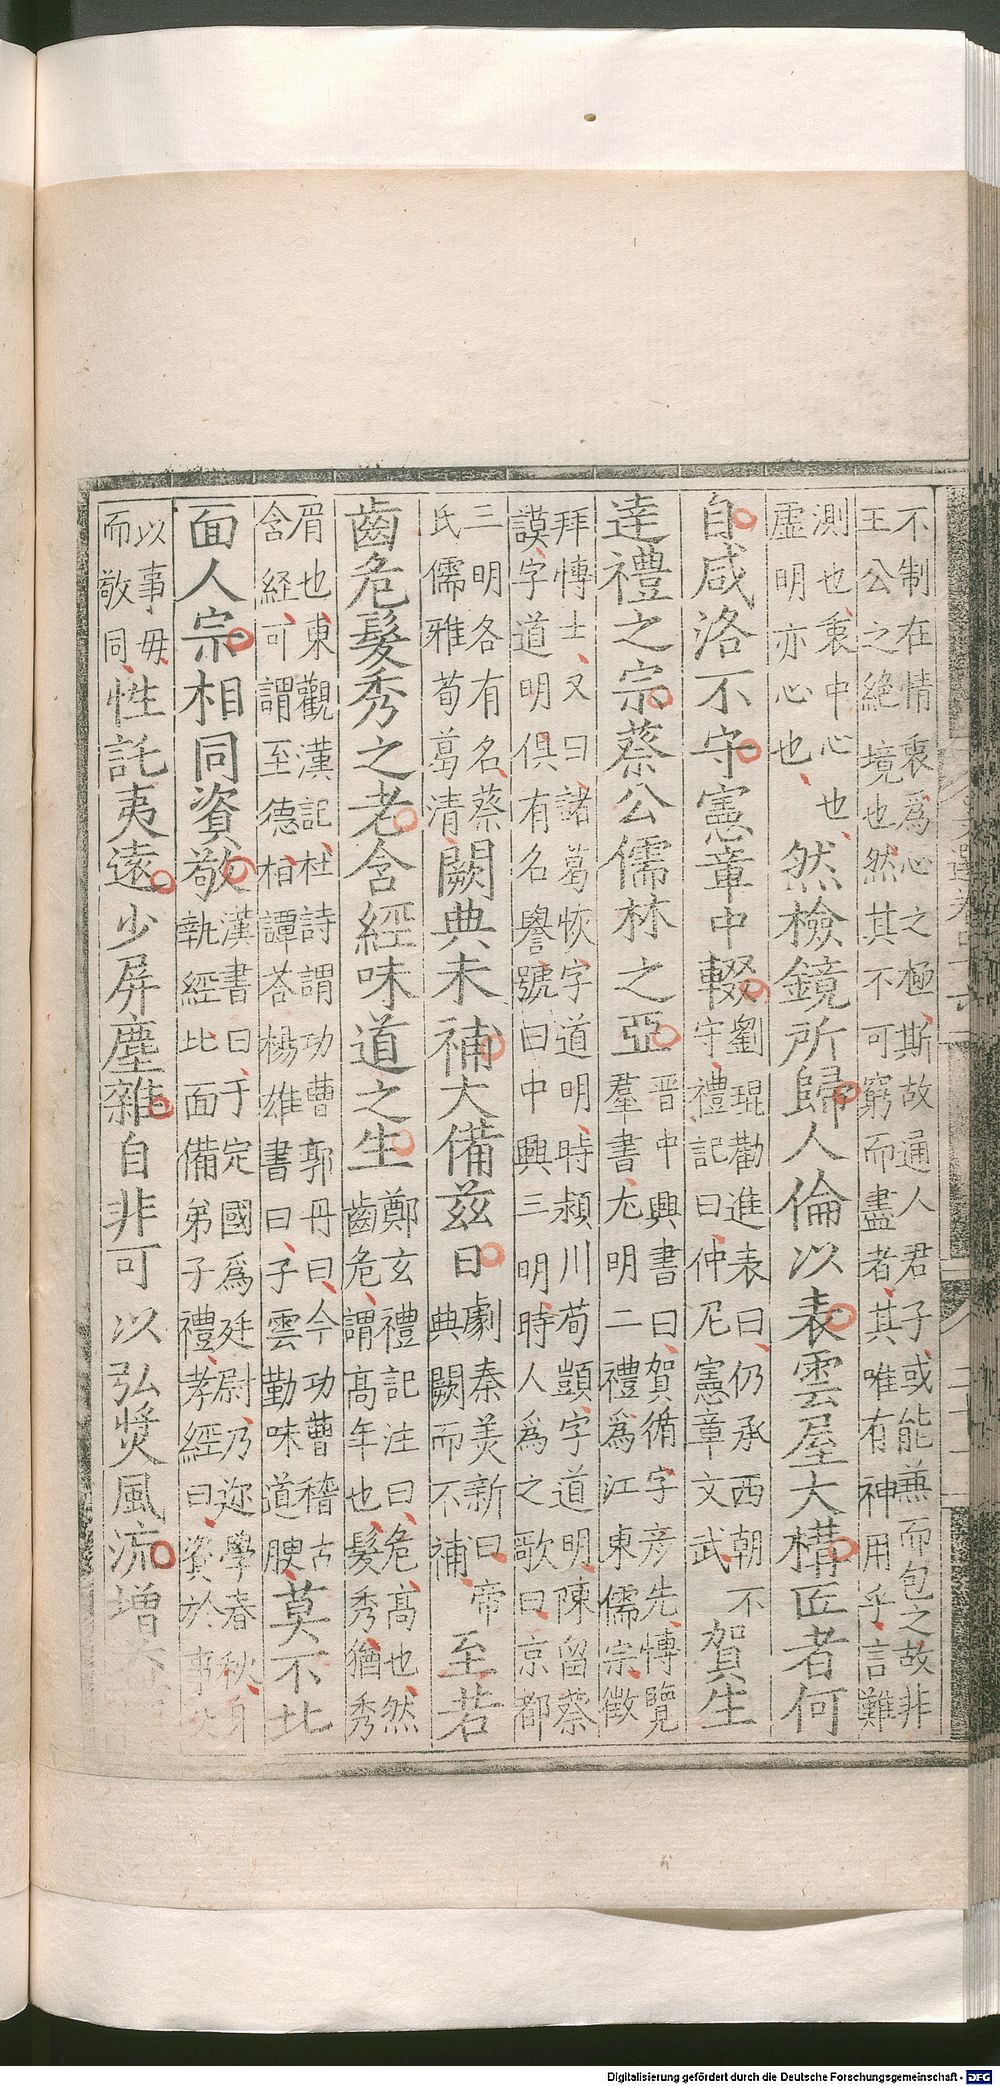 不制在情衷爲心之極斯故通人君子或能兼而包之故非
王公之絶境也然其不可窮而盡者其唯有神用乎言難
測也衷中心也
虛明亦心也
然檢鏡所歸人倫以表雲屋大構匠者何
自咸洛不守憲章中輟
劉琨勸進表曰仍承西朝不
守禮記曰仲尼憲章文武
賀生
達禮之宗蔡公儒林之亞
晋中興書曰賀循字彦先博覽
羣書尤明二禮爲江東儒宗徵
拜博士又曰諸葛恢字道明時潁川荀顗字道明陳留蔡
謨字道明俱有名譽號曰中興三明時人爲之歌曰京都
三明各有名蔡
氏儒雅荀葛清
闕典未補大備兹日
劇秦美新曰帝
典闕而不補
至若
齒危髮秀之老含經味道之生
鄭玄禮記注曰危高也然
齒危謂高年也髮秀猶秀
眉也東觀漢記杜詩謂功曹郭丹曰今功曹稽古
含經可謂至德桓譚荅楊雄書曰子雲勤味道腴
莫不北
面人宗相同資敬
漢書曰于定國爲廷尉乃迎學春秋身
執經北面備弟子禮孝經曰資於事
以事母
而敬同
性託夷遠少屏塵雜自非可以弘奬風流增
Digitalisierung gefördert durch die Deutsche Forschungsgemeinschaft - DFG